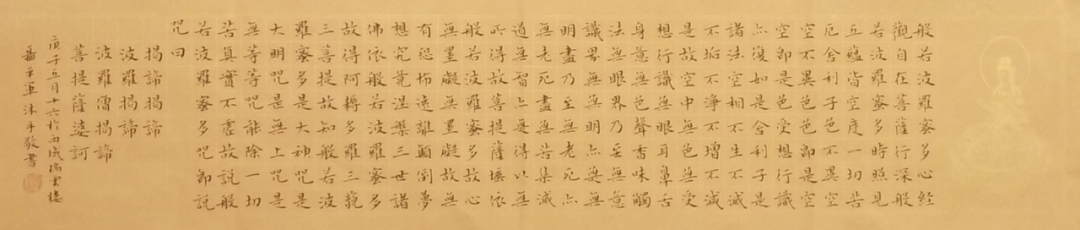 般若波羅蜜多心經
觀自在菩薩行深般
若波羅蜜多時照見
五蘊皆空度一切苦
厄舍利子色不異空
空不異色色即是空
空即是色受想行識
亦復如是舍利子是
諸法空相不生不滅
不垢不淨不增不減
是故空中無色無受
想行識無眼耳鼻舌
身意無色聲香味觸
法無眼界乃至無意
識界無無明亦無無
明盡乃至無老死亦
無老死盡無苦集滅
道無智亦無得以無
所得故菩提薩埵依
般若波羅蜜多故心
無罣礙無罣礙故無
有恐怖遠離顛倒夢
想究竟涅槃三世諸
佛依般若波羅蜜多
故得阿耨多羅三藐
三菩提故知般若波
羅蜜多是大神咒是
大明咒是無上咒是
無等等咒能除一切
苦真實不虛故說般
若波羅蜜多咒即說
咒曰
揭諦揭諦
波羅揭諦
波羅僧揭諦
菩提薩婆訶
庚子五月十六於西城瑞雲樓
沐手敬書